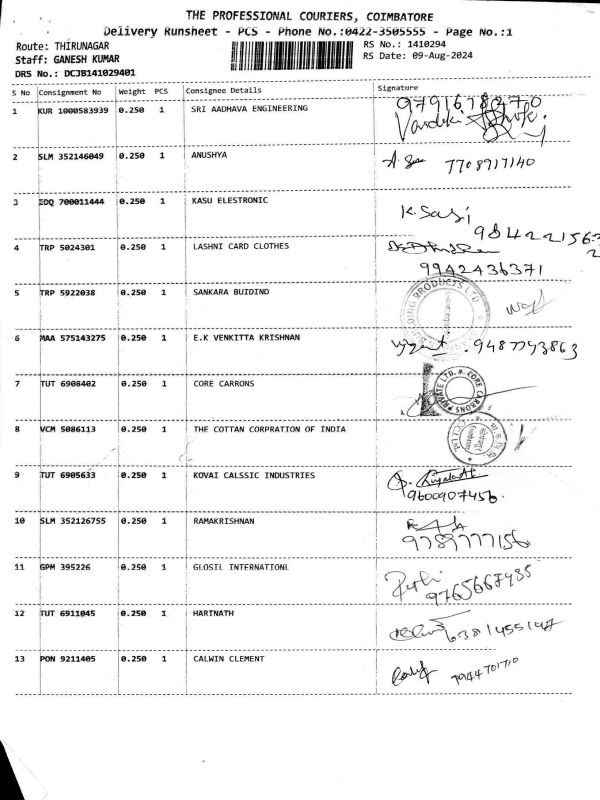 THE PROFESSIONAL COURIERS, COIMBATORE
Delivery Runsheet - PCS - Phone No.:0422-3505555 - Page No.:1
Route: THIRUNAGAR RS No.: 1410294
Staff: GANESH KUMAR RS Date: 09-Aug-2024
DRS No.: DCJB141029401
S No Consignment No Weight PCS Consignee Details Signature
1 KUR 1000583939 0.250 1 SRI AADHAVA ENGINEERING
2 SLM 352146049 0.250 1 ANUSHYA 7708917140
3 EDQ 700011444 0.250 1 KASU ELESTRONIC K. Sasi
4 TRP 5024301 0.250 1 LASHNI CARD CLOTHES
9942436371
5 TRP 5922038 0.250 1 SANKARA BUIDIND
6 MAA 575143275 0.250 1 E.K VENKITTA KRISHNAN
7 TUT 6908402 0.250 1 CORE CARRONS
8 VCM 5086113 0.250 1 THE COTTAN CORPRATION OF INDIA
9 TUT 6905633 0.250 1 KOVAI CALSSIC INDUSTRIES
9600907456.
10 SLM 352126755 0.250 1 RAMAKRISHNAN
9789777156
11 GPM 395226 0.250 1 GLOSIL INTERNATIONL
9765667435
12 TUT 6911045 0.250 1 HARINATH
13 PON 9211405 0.250 1 CALWIN CLEMENT